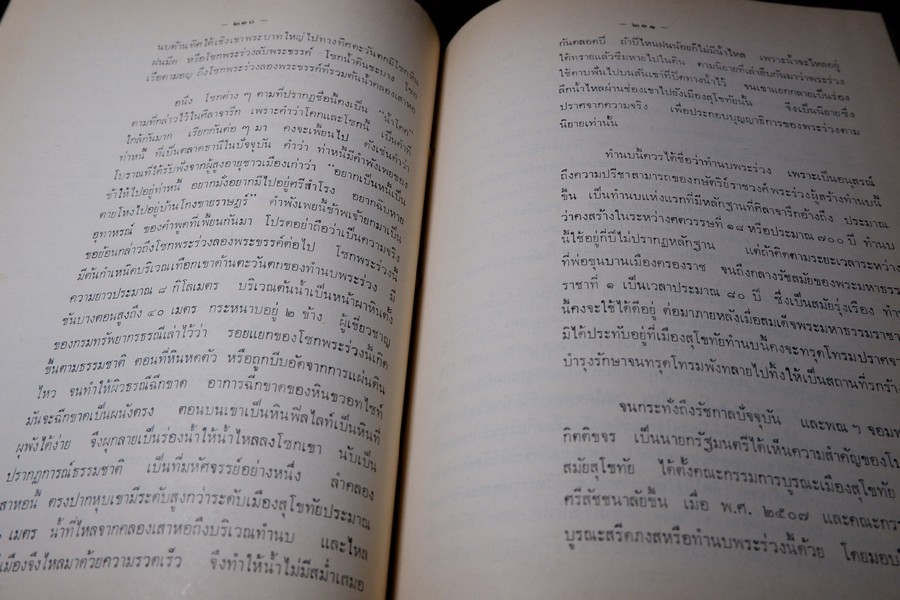 — ๒๑๐ —
นบด้านทิศใต้เชิงเขาพระบาทใหญ่ไปทางทิศตะวันตกมีโซกม่น
ฝนมืด หรือโซกพระร่วงลับพระขรรค์ โซกน้ำดิบชะนาง โซก
เรือตามอญ ถึงโซกพระร่วงลองพระขรรค์ที่รวมต้นน้ำคลองเสาหอ
อนึ่ง โซกต่าง ๆ ตามที่ปรากฏชื่อนี้คงเป็น "น้ำโคก"
ตามที่กล่าวไว้ในศิลาจารึก เพราะคำว่าโคกและโซกนี้ เป็นคำที่
ใกล้กันมาก เรียกกันต่อ ๆ มา คงจะเพี้ยนไป ดังเช่นคำว่า
ท่าหนี้ ที่เป็นตลาดธานีในปัจจุบัน คำว่า ท่าหนี้มีคำพังเพยของ
โบราณที่ได้รับฟังจากผู้สูงอายุชาวเมืองเก่าว่า "อยากเป็นหนี้เป็น
ข้าให้ไปอยู่ท่าหนี้ อยากมั่งอยากมีไปอยู่ศรีสำโรง อยากฉิบหาย
ตายโหงไปอยู่บ้านโกงชายราษฎร์" คำพังเพยนี้ข้าพเจ้ายกมาเป็น
อุทาหรณ์ ของคำพูดที่เพี้ยนกันมา โปรดอย่าถือว่าเป็นความจริง
ขอย้อนกล่าวถึงโซกพระร่วงลองพระขรรค์ต่อไป โซกพระร่วงนี้
มีต้นกำเหนิดบริเวณเทือกเขาด้านตะวันตกของทำนบพระร่วง มี
ความยาวประมาณ ๘ กิโลเมตร บริเวณต้นน้ำเป็นหน้าผาหินตั้ง
ชันบางตอนสูงถึง ๔๐ เมตร กระหนาบอยู่ ๒ ข้าง ผู้เชี่ยวชาญ
ของกรมทรัพยากรธรณีเล่าไว้ว่า รอยแยกของโซกพระร่วงนี้เกิด
ขึ้นตามธรรมชาติ ตอนที่หินหดตัว หรือถูกบีบอัดจากการแผ่นดิน
ไหว จนทำให้ผิวธรณีฉีกขาด อาการฉีกขาดของหินขวอทไซท์
มันจะฉีกขาดเป็นผนังตรง ตอนบนเขาเป็นหินฟิลไลท์เป็นหินที่
ผุพังได้ง่าย จึงผุกลายเป็นร่องน้ำให้น้ำไหลลงโซกเขา นับเป็น
ปรากฏการณ์ธรรมชาติ เป็นที่มหัศจรรย์อย่างหนึ่ง ลำคลอง
สาหอนี้ ตรงปากหุบเขามีระดับสูงกว่าระดับเมืองสุโขทัยประมาณ
เมตร น้ำที่ไหลจากคลองเสาหอถึงบริเวณทำนบ และไหล
เมืองจึงไหลมาด้วยความรวดเร็ว จึงทำให้น้ำไม่มีสม่ำเสมอ
— ๒๑๑ —
กันตลอดปี ถ้าปีไหนฝนน้อยก็ไม่มีน้ำไหล เพราะน้ำจะไหลอยู่
ใต้ทรายแล้วซึมหายไปในดิน ตามนิยายที่เล่าสืบกันมาว่าพระร่วง
ใช้ดาบฟันไปบนสันเขาที่ปิดทางน้ำไว้ จนเขาแยกกลายเป็นร่อง
ลึกน้ำไหลผ่านช่องเขาไปยังเมืองสุโขทัยนั้น จึงเป็นนิยายซึ่ง
ปราศจากความจริง เพื่อประกอบบุญญาธิการของพระร่วงตาม
นิยายเท่านั้น
ทำนบนี้ควรได้ชื่อว่าทำนบพระร่วง เพราะเป็นอนุสรณ์
ถึงความปรีชาสามารถของกษัตริย์ราชวงศ์พระร่วงผู้สร้างทำนบนี้
ขึ้น เป็นทำนบแห่งแรกที่มีหลักฐานที่ศิลาจารึกอ้างถึง ประมาณ
ว่าคงสร้างในระหว่างศตวรรษที่ ๑๘ หรือประมาณ ๗๐๐ ปี ทำนบ
นี้ใช้อยู่กี่ปีไม่ปรากฏหลักฐาน แต่ถ้าคิดตามระยะเวลาระหว่าง
ที่พ่อขุนบานเมืองครองราช จนถึงกลางรัชสมัยของพระมหาธรรม
ราชาที่ ๑ เป็นเวลาประมาณ ๘๐ ปี ซึ่งเป็นสมัยรุ่งเรือง ทำ
นี้คงจะใช้ได้ดีอยู่ ต่อมาภายหลังเมื่อสมเด็จพระมหาธรรมราชา
มิได้ประทับอยู่ที่เมืองสุโขทัยทำนบนี้คงจะทรุดโทรมปราศจา
บำรุงรักษาจนทรุดโทรมพังทลายไปทิ้งให้เป็นสถานที่รกร้าง
จนกระทั่งถึงรัชกาลปัจจุบัน และพณ ๆ จอมพ
กิตติขจร เป็นนายกรัฐมนตรีได้เห็นความสำคัญของโบ
สมัยสุโขทัย ได้ตั้งคณะกรรมการบูรณะเมืองสุโขทัย
ศรีสัชชนาลัยขึ้น เมื่อ พ.ศ. ๒๕๐๗ และคณะกรร
บูรณะสรีดภงสหรือทำนบพระร่วงนี้ด้วย โดยมอบใ